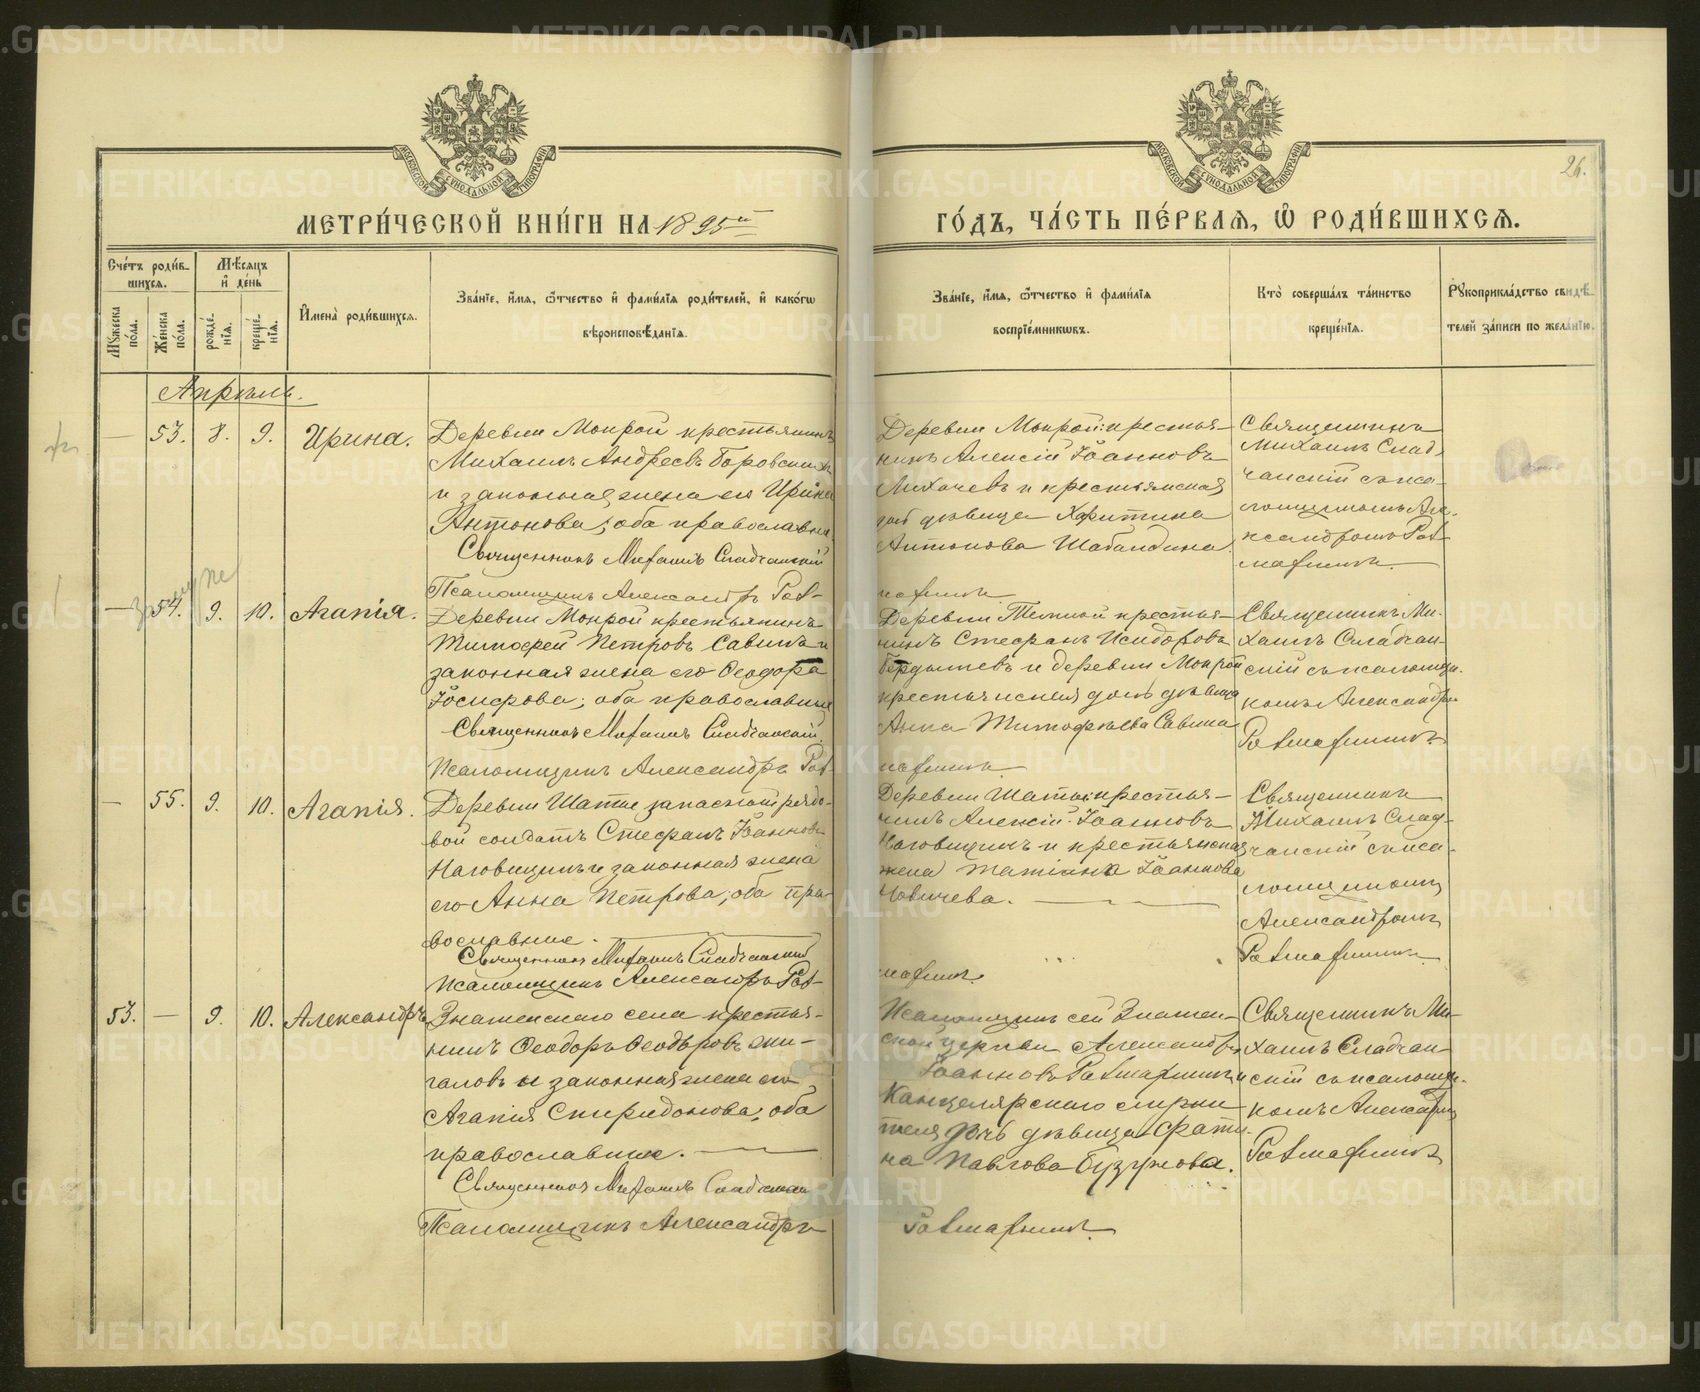 МОСКОВСКОЙ СѴНОДАЛЬНОЙ ТИПОГРАФІИ
МОСКОВСКОЙ СѴНОДАЛЬНОЙ ТИПОГРАФІИ
26.
МЕТРИ́ЧЕСКОЙ КНИ́ГИ НА 1895й
ГО́ДЪ, ЧА́СТЬ ПЕ́РВАѦ, Ѽ РОДИ́ВШИХСѦ.
Сче́тъ роди́в-
шихся.
Мѣ́сяцъ
и҆ де́нь
Мꙋ́жеска по́ла.
Же́нска по́ла.
рожде́-
нїя.
креще́-
нїя.
И҆мена̀ роди́вшихся.
Зва́нїе, и҆́мя, ѻ҆́тчество и҆ фами́лїя роди́телей, и҆ како́гѡ
вѣроисповѣ́данїя.
Зва́нїе, и҆́мя, ѻ҆́тчество и҆ фами́лїя
воспрїе́мникѡвъ.
Кто̀ соверша́лъ та́инство
креще́нїя.
Рꙋкоприкла́дство свидѣ́-
телей за́писи по жела́нїю.
Апрѣль.
— 53. 8. 9. Ирина.
Деревни Мокрой крестьянинъ
Михаилъ Андреевъ Боровскихъ
и законная жена его Ирина
Антонова; оба православные
Священникъ Михаилъ Сладчанскій
Псаломщикъ Александръ Рат-
Деревни Мокрой крестья-
нинъ Алексій Іоанновъ
Лихачевъ и крестьянская
дочь дѣвица Харитина
Антонова Шабандина.
Священникъ
Михаилъ Слад-
чанскій съ пса-
ломщикомъ Але-
ксандромъ Рат-
— 54. 9. 10. Агапія.
Деревни Мокрой крестьянинъ
Тимофей Петровъ Савинъ и
законная жена его Ѳеодора
Іосифова; оба православные
Священникъ Михаилъ Сладчанскій
Псаломщикъ Александръ Рат-
крестья-
нинъ Стефанъ Исидоровъ
и деревни Мокрой
крестьянская дочь дѣвица
Анна Тимофѣева Савина
Священникъ Ми-
хаилъ Сладчан-
скій съ псаломщи-
комъ Александро
— 55. 9. 10. Агапія.
Деревни запасной рядо-
вой солдатъ Стефанъ Іоанновъ
Наговицинъ и законная жена
его Анна Петрова; оба пра-
вославные.
Священникъ Михаилъ Сладчанскій
Псаломщикъ Александръ Рат-
Деревни крестья-
нинъ Алексій Іоанновъ
Наговицинъ и крестьянская
жена Іоаннова
Священникъ
Михаилъ Слад-
чанскій съ пса-
ломщикомъ
Александромъ
53. — 9. 10. Александръ
Знаменскаго села крестья-
нинъ Ѳеодоръ Ѳеодоровъ Жи-
галовъ и законная жена его
Агапія Спиридонова; оба
православные.
Священникъ Михаилъ Сладчанскій
Псаломщикъ Александръ
Псаломщикъ сей Знамен-
ской церкви Александръ
Іоанновъ и
Канцелярскаго служи-
теля дочь дѣвица Фати-
на Павлова
Священникъ Ми-
хаилъ Сладчан-
скій съ псаломщи-
комъ Александро
METRIKI.GASO-URAL.RU